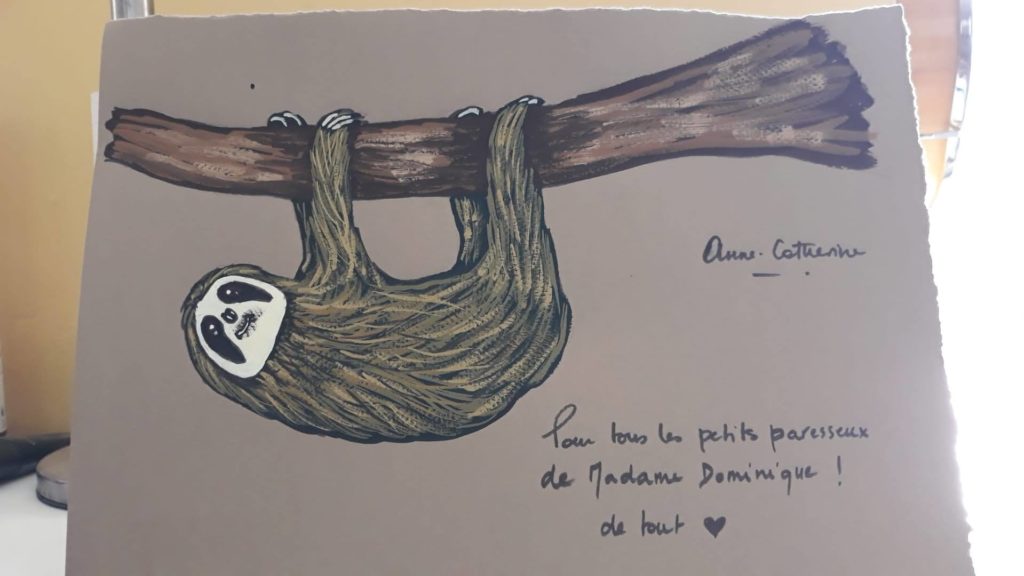 Anne-Catherine
Pour tous les petits paresseux
de Madame Dominique !
de tout ♥